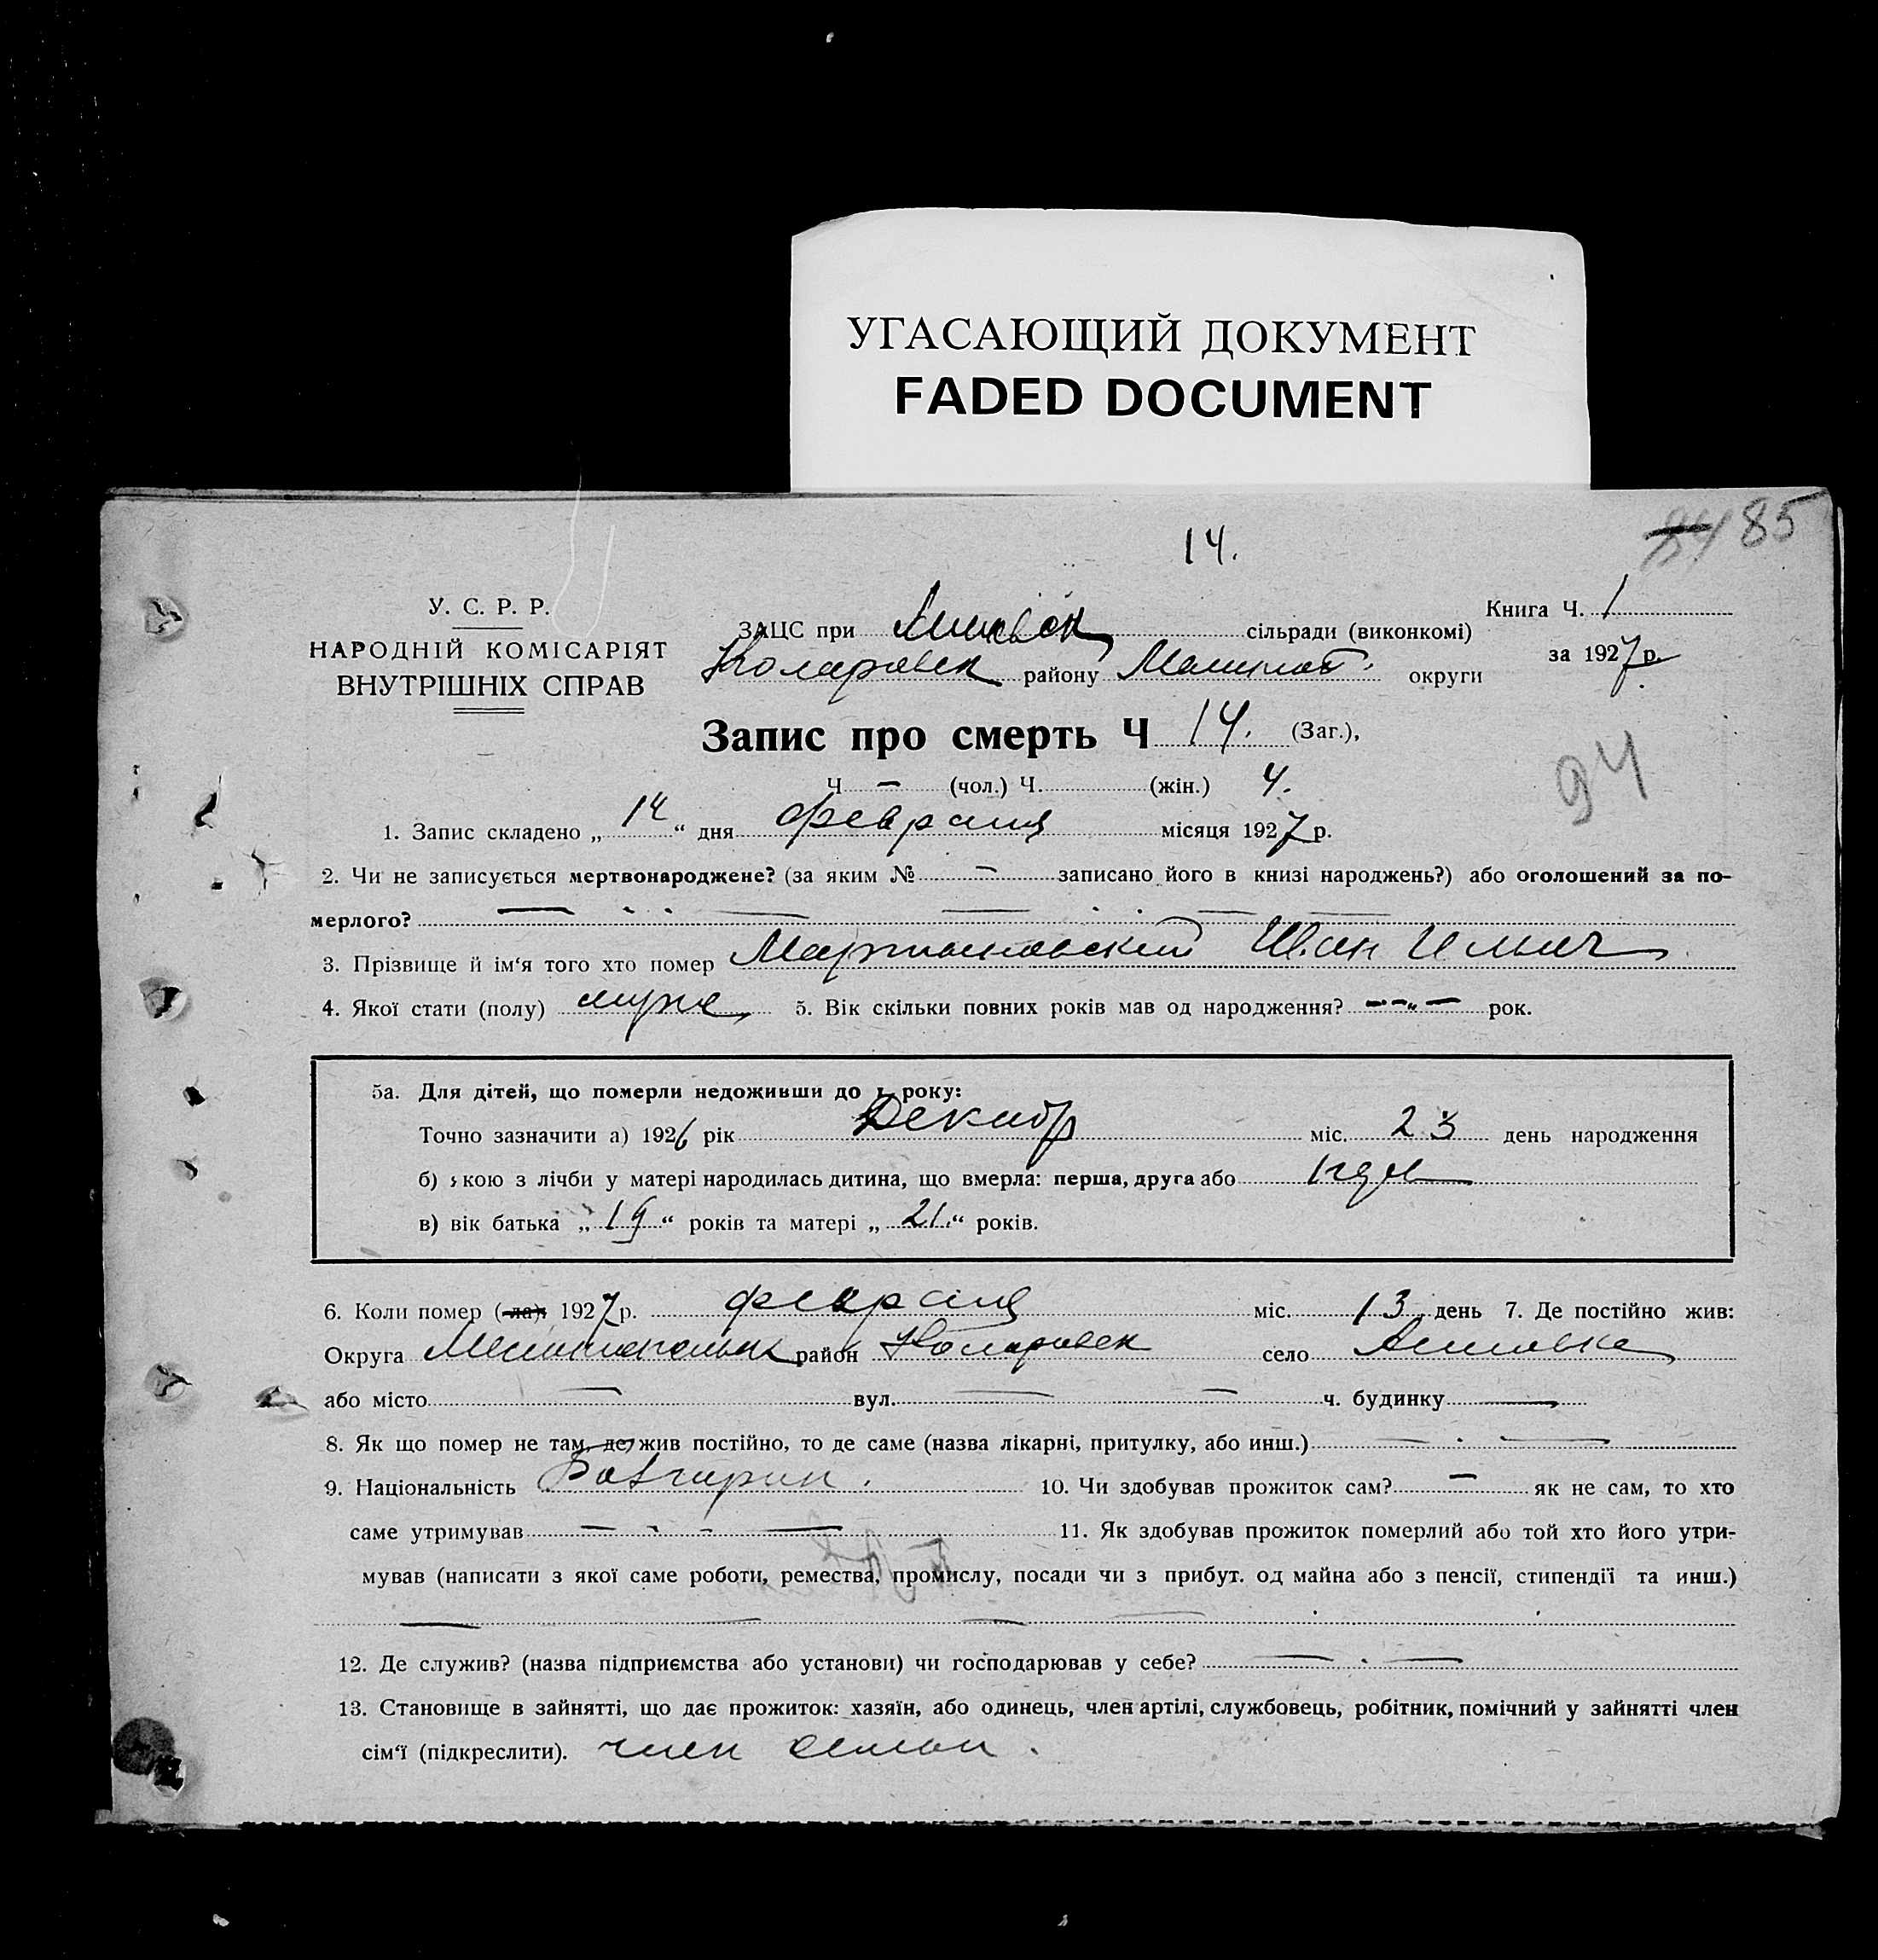 УГАСАЮЩИЙ ДОКУМЕНТ
FADED DOCUMENT
14.
84 85
У. С. Р. Р.
НАРОДНІЙ КОМІСАРІЯТ
ВНУТРІШНІХ СПРАВ
ЗАЦС при сільради (виконкомі)
Коларовск району округи
Книга Ч. 1
за 1927 р.
Запис про смерть Ч 14. (Заг.),
Ч — (чол.) Ч. (жін.) 4.
94
1. Запис складено „ 14 “ дня февраля місяця 1927 р.
2. Чи не записується мертвонароджене? (за яким № — записано його в книзі народжень?) або оголошений за по-
мерлого? —
3. Прізвище й ім‘я того хто помер Ильич
4. Якої стати (полу) муж 5. Вік скільки повних років мав од народження? — „ — рок.
5а. Для дітей, що померли недоживши до 1 року:
Точно зазначити а) 1926 рік Декабр міс. 23 день народження
б) якою з лічби у матері народилась дитина, що вмерла: перша, друга або
в) вік батька „ 19 “ років та матері „ 21. “ років.
6. Коли помер (ла) 1927 р. февраля міс. 13 день 7. Де постійно жив:
Округа Мелитопольск район Коларовск село
або місто — вул. — — ч. будинку —
8. Як що помер не там, де жив постійно, то де саме (назва лікарні, притулку, або инш.) — . —
9. Національність Болгарин. 10. Чи здобував прожиток сам? — як не сам, то хто
саме утримував — — 11. Як здобував прожиток померлий або той хто його утри-
мував (написати з якої саме роботи, ремества, промислу, посади чи з прибут. од майна або з пенсії, стипендії та инш.)
— — — —
12. Де служив? (назва підприємства або установи) чи господарював у себе? — . —
13. Становище в зайнятті, що дає прожиток: хазяїн, або одинець, член артілі, службовець, робітник, помічний у зайнятті член
сім‘ї (підкреслити). член семьи.